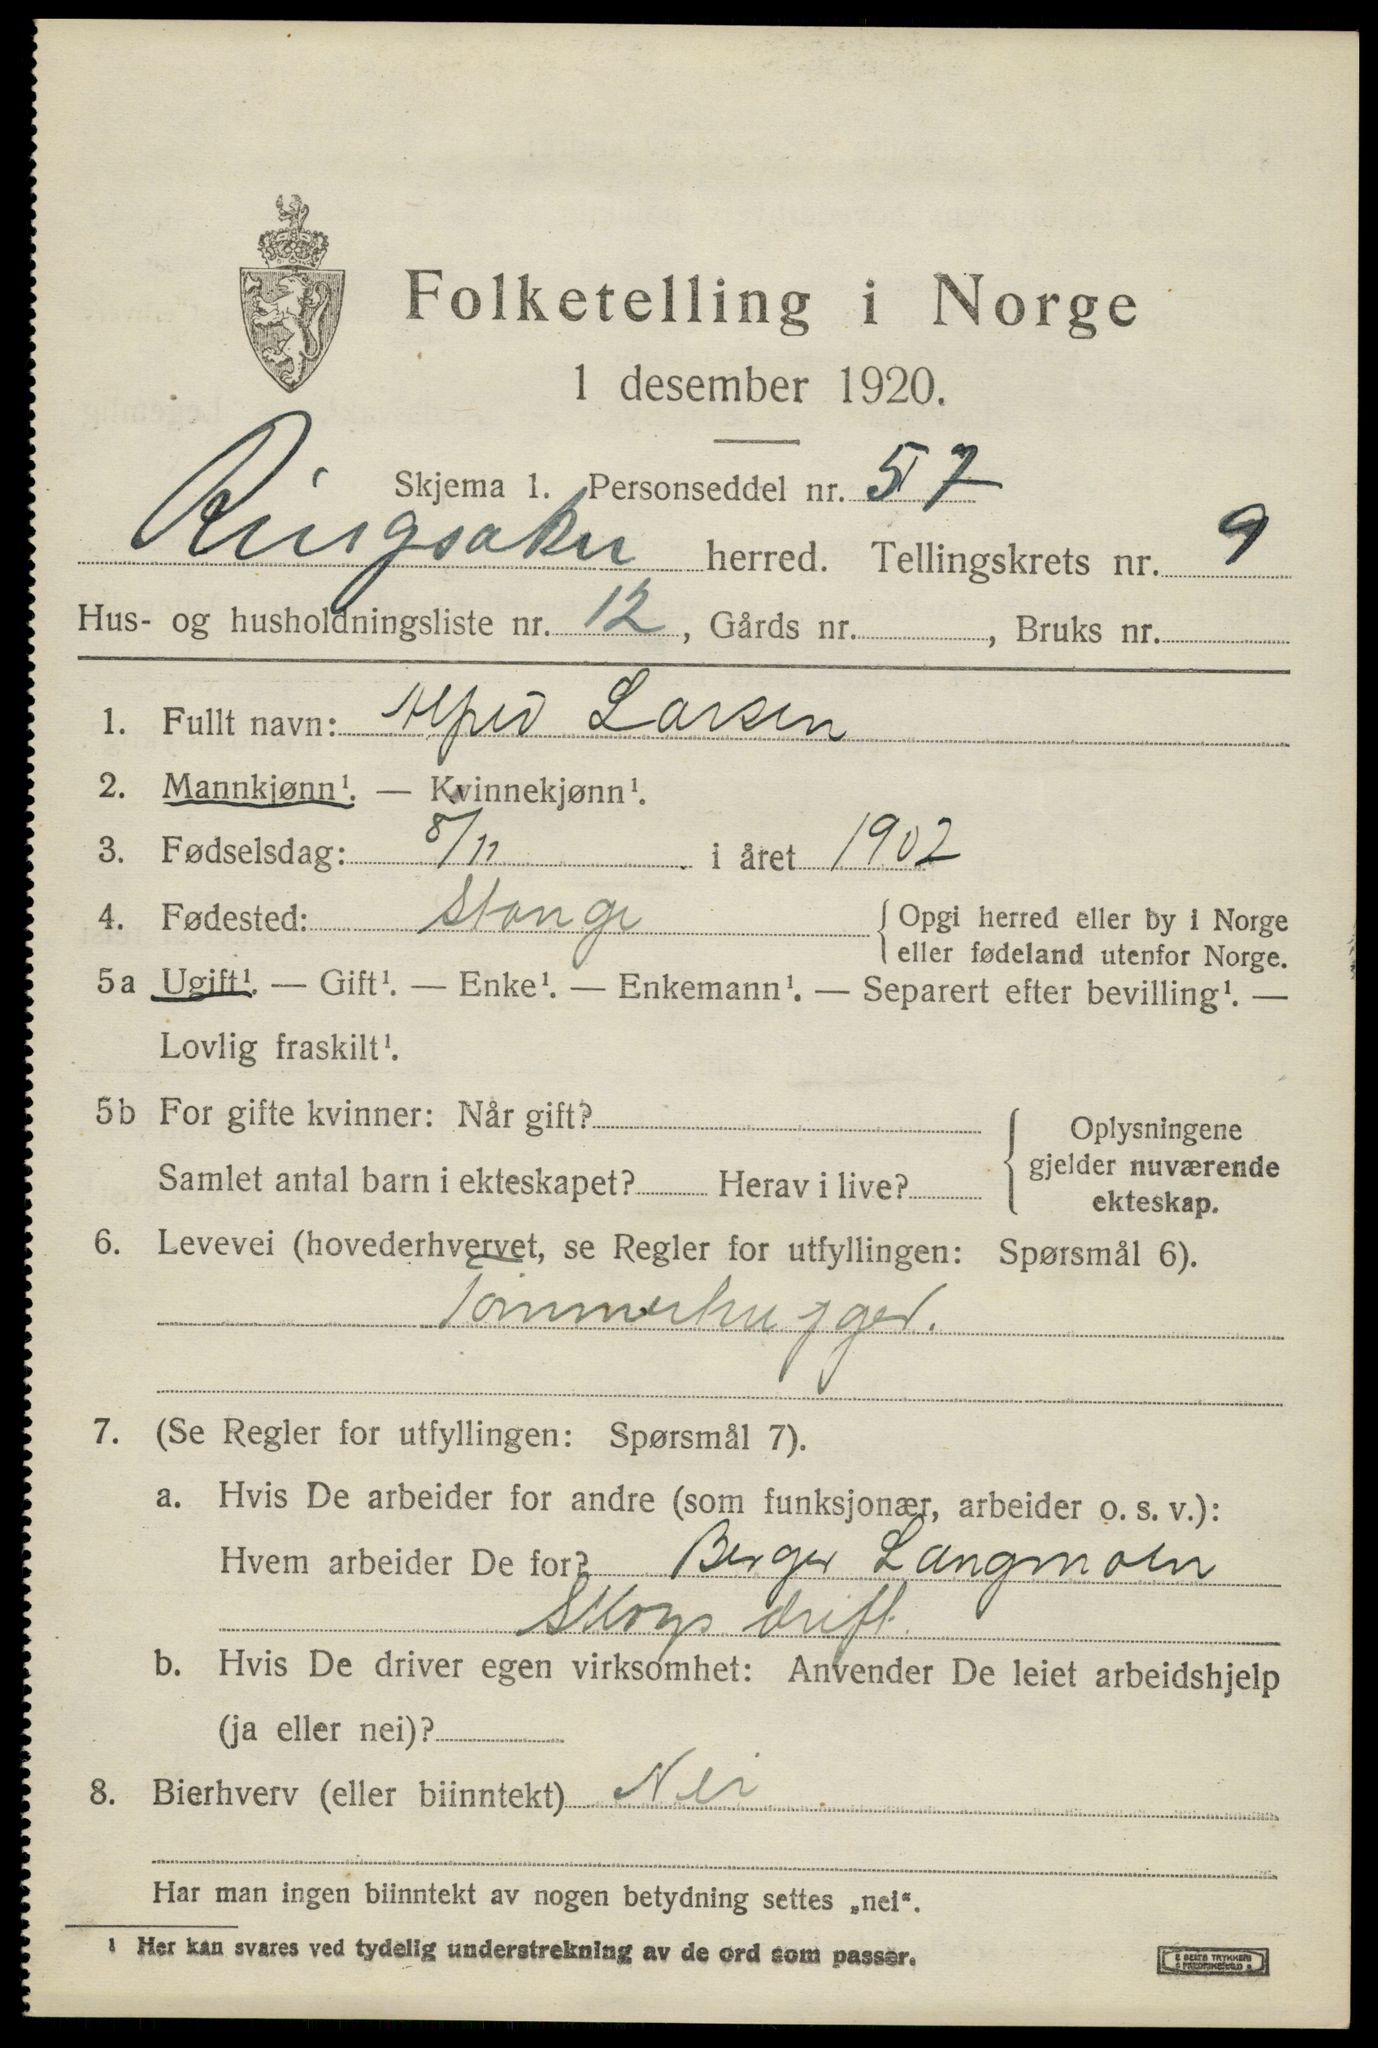 Folketelling i Norge
1 desember 1920.
Skjema 1. Personseddel nr. 57
Ringsaker herred. Tellingskrets nr. 9
Hus- og husholdningsliste nr. 12, Gårds nr. , Bruks nr.
1. Fullt navn: Alfred Larsen
2. Mannkjønn¹. — Kvinnekjønn¹.
3. Fødselsdag: 8/11 i året 1902
4. Fødested: Stange { Opgi herred eller by i Norge
eller fødeland utenfor Norge.
5a Ugift¹. — Gift¹. — Enke¹. — Enkemann¹. — Separert efter bevilling¹. —
Lovlig fraskilt¹.
5b For gifte kvinner: Når gift?
Samlet antal barn i ekteskapet? Herav i live?
Oplysningene
gjelder nuværende
ekteskap.
6. Levevei (hovederhvervet, se Regler for utfyllingen: Spørsmål 6).
Tømmerhugger.
7. (Se Regler for utfyllingen: Spørsmål 7).
a. Hvis De arbeider for andre (som funksjonær, arbeider o. s. v.):
Hvem arbeider De for? Berger Langmoen
Skogsdrift
b. Hvis De driver egen virksomhet: Anvender De leiet arbeidshjelp
(ja eller nei)?
8. Bierhverv (eller biinntekt) Nei
Har man ingen biinntekt av nogen betydning settes „nei“.
1 Her kan svares ved tydelig understrekning av de ord som passer.